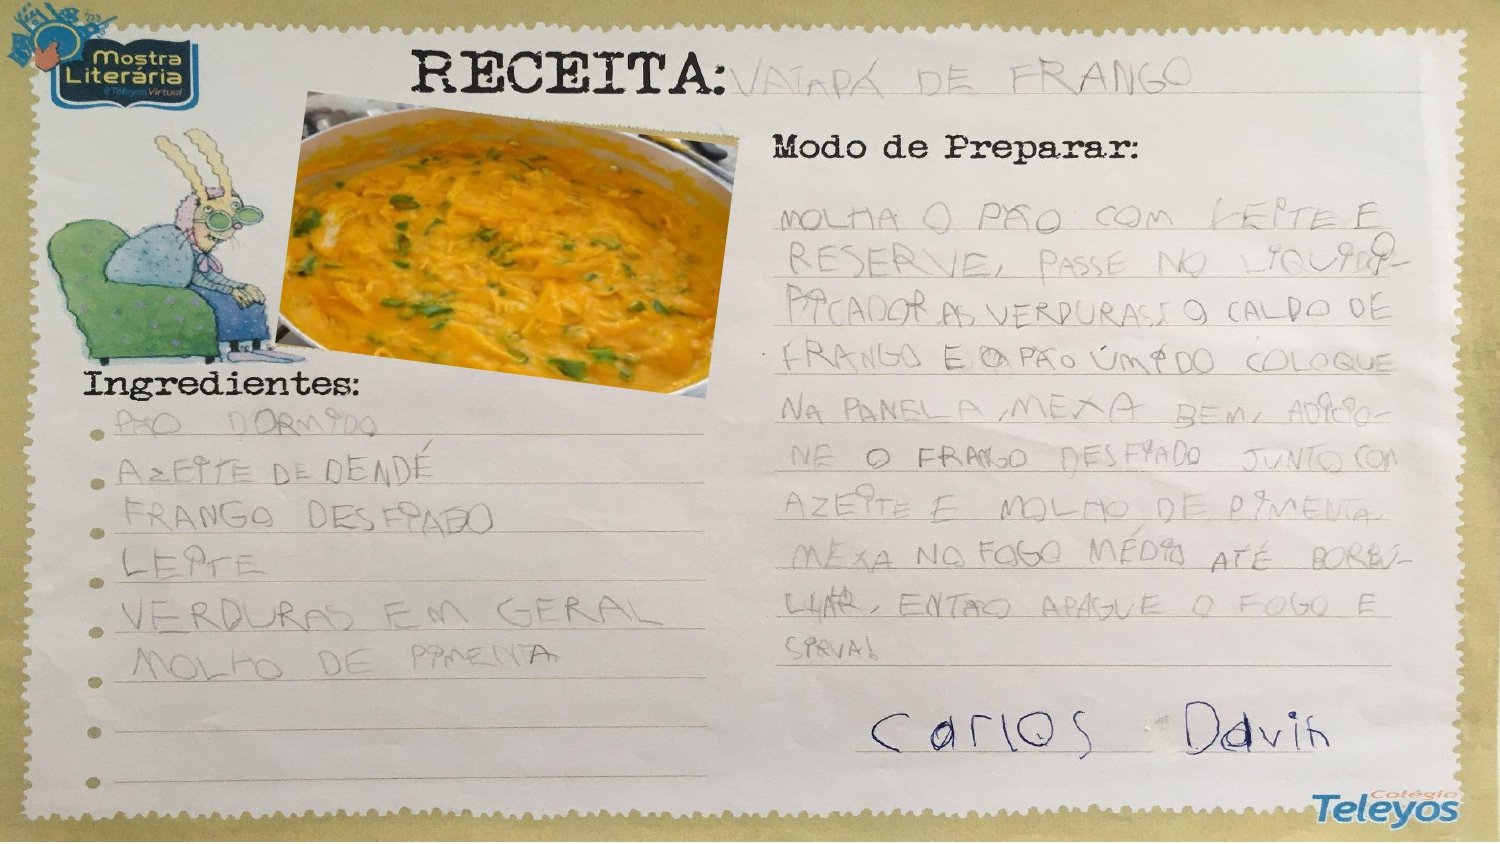 Mostra
Literária
#TeleyosVirtual
RECEITA: VATAPÁ DE FRANGO
Ingredientes:
PÃO DORMIDO
AZEITE DE DENDÉ
FRANGO DESFIADO
LEITE
VERDURAS EM GERAL
MOLHO DE PIMENTA
Modo de Preparar:
MOLHA O PÃO COM LEITE E
RESERVE, PASSE NO LIQUIDI-
FICADOR AS VERDURAS, O CALDO DE
FRANGO E O PÃO ÚMIDO COLOQUE
NA PANELA, MEXA BEM, ADICIO-
NE O FRANGO DESFIADO JUNTO COM
AZEITE E MOLHO DE PIMENTA
MEXA NO FOGO MÉDIO ATÉ BORBU-
LHAR, ENTÃO APAGUE O FOGO E
SIRVA!
Carlos Davih
Colégio
Teleyos